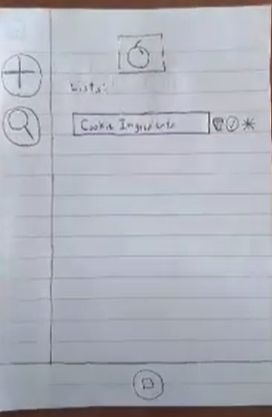 Lists:
Cookie Ingredients